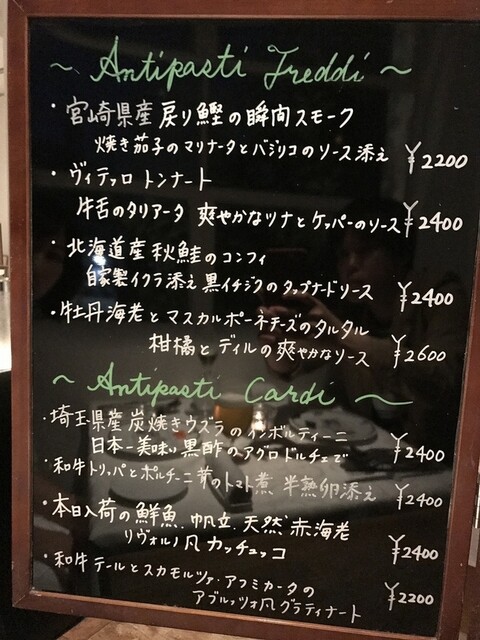 ~ Antipasti Freddi ~
・宮崎県産 戻り鰹の瞬間スモーク
焼き茄子のマリナータとバジリコのソース添え ¥2200
・ヴィテッロ トンナート
牛舌のタリアータ 爽やかなツナとケッパーのソース ¥2400
・北海道産 秋鮭のコンフィ
自家製イクラ添え 黒イチジクのタップナードソース ¥2400
・牡丹海老とマスカルポーネチーズのタルタル
柑橘とディルの爽やかなソース ¥2600
~ Antipasti Cardi ~
・埼玉県産 炭焼きウズラのインボルティーニ
日本一美味い黒酢のアグロドルチェで ¥2400
・和牛トリッパとポルチーニ茸のトマト煮 半熟卵添え ¥2400
・本日入荷の鮮魚、帆立、天然赤海老
リヴォルノ風 カッチュッコ ¥2400
・和牛テールとスカモルツァ・アフミカータの
アブルッツォ風グラティナート ¥2200